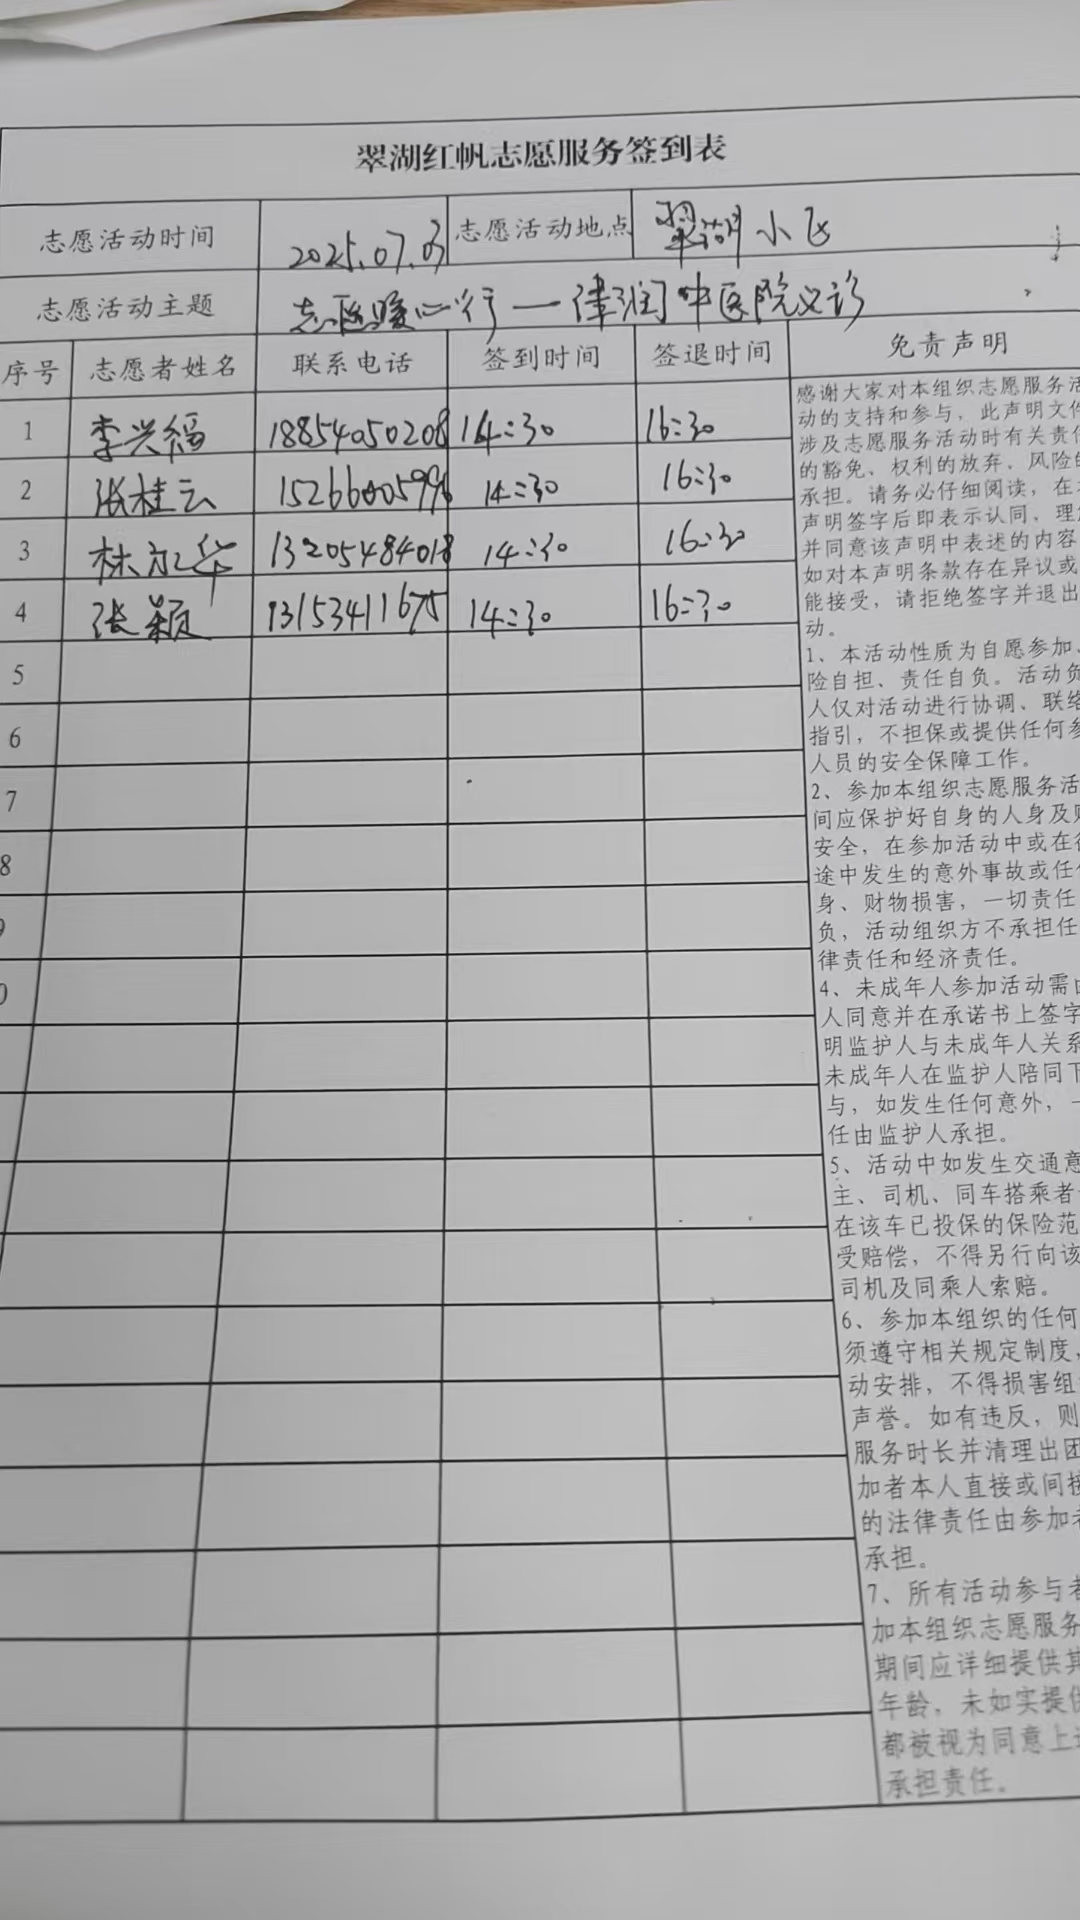 翠湖红帆志愿服务签到表
志愿活动时间 2025.07.03 志愿活动地点 翠湖小区
志愿活动主题 志愿暖心行一律润中医院义诊
序号 志愿者姓名 联系电话 签到时间 签退时间 免责声明
1 李兴福 18854050208 14:30 16:30
2 张桂云 14:30 16:30
3 林永华 13205484018 14:30 16:30
4 张颖 13153411675 14:30 16:30
5
6
7
8
9
0
感谢大家对本组织志愿服务活
动的支持和参与，此声明文件
涉及志愿服务活动时有关责任
的豁免、权利的放弃，风险的
承担。请务必仔细阅读，在
声明签字后即表示认同，理解
并同意该声明中表述的内容
如对本声明条款存在异议或
能接受，请拒绝签字并退出
动。
1、本活动性质为自愿参加、
险自担、责任自负。活动负
人仅对活动进行协调、联络
指引，不担保或提供任何参
人员的安全保障工作。
2、参加本组织志愿服务活
间应保护好自身的人身及财
安全，在参加活动中或在往
途中发生的意外事故或任何
身、财物损害，一切责任
负，活动组织方不承担任
律责任和经济责任。
4、未成年人参加活动需由
人同意并在承诺书上签字
明监护人与未成年人关系
未成年人在监护人陪同下
与，如发生任何意外，一
任由监护人承担。
5、活动中如发生交通意
主、司机、同车搭乘者
在该车已投保的保险范
受赔偿，不得另行向该
司机及同乘人索赔。
6、参加本组织的任何
须遵守相关规定制度，
动安排，不得损害组
声誉。如有违反，则
服务时长并清理出团
加者本人直接或间接
的法律责任由参加者
承担。
7、所有活动参与者
加本组织志愿服务
期间应详细提供其
年龄，未如实提供
都被视为同意上述
承担责任。